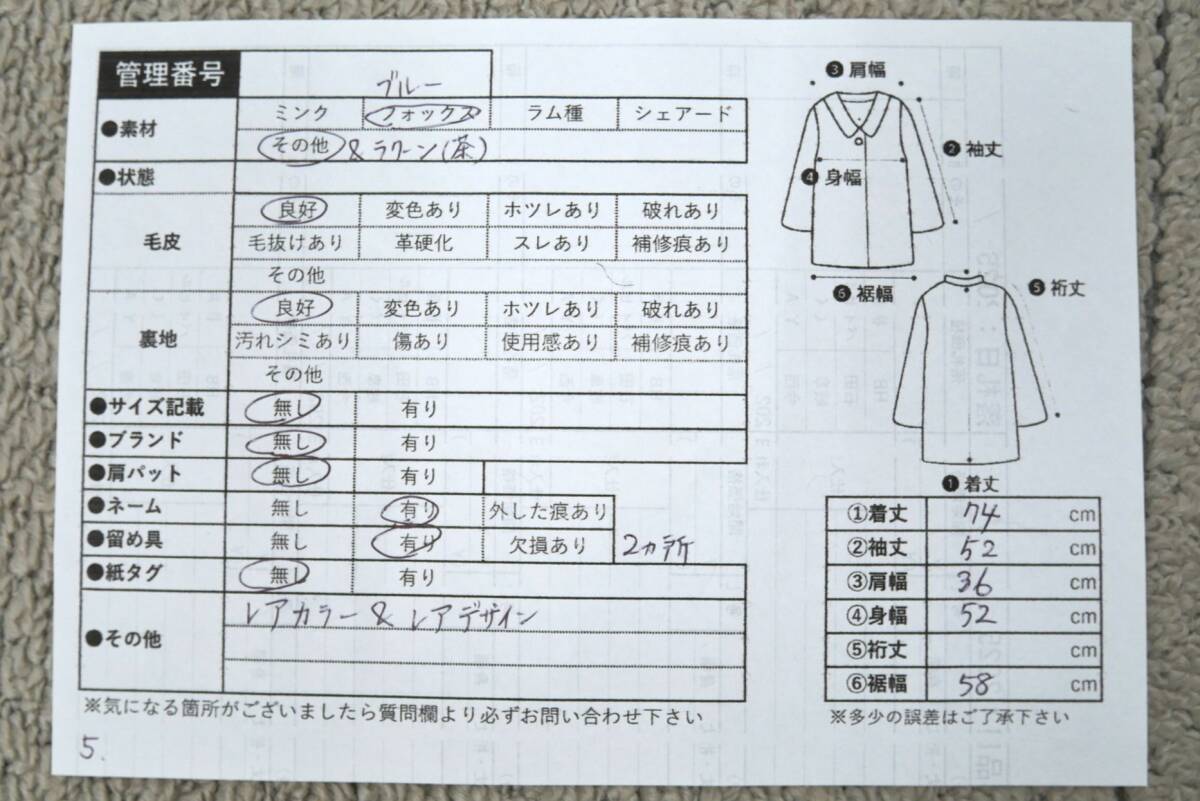 管理番号
ブルー
●素材 ミンク フォックス ラム種 シェアード
その他 & ラクーン(茶)
●状態
毛皮 良好 変色あり ホツレあり 破れあり
毛抜けあり 革硬化 スレあり 補修痕あり
その他
裏地 良好 変色あり ホツレあり 破れあり
汚れシミあり 傷あり 使用感あり 補修痕あり
その他
●サイズ記載 無し 有り
●ブランド 無し 有り
●肩パット 無し 有り
●ネーム 無し 有り 外した痕あり
●留め具 無し 有り 欠損あり 2ヵ所
●紙タグ 無し 有り
●その他 レアカラー & レアデザイン
※気になる箇所がございましたら質問欄より必ずお問い合わせ下さい
5.
❸肩幅
❷袖丈
❹身幅
❻裾幅
❺裄丈
❶着丈
①着丈 74 cm
②袖丈 52 cm
③肩幅 36 cm
④身幅 52 cm
⑤裄丈 cm
⑥裾幅 58 cm
※多少の誤差はご了承下さい